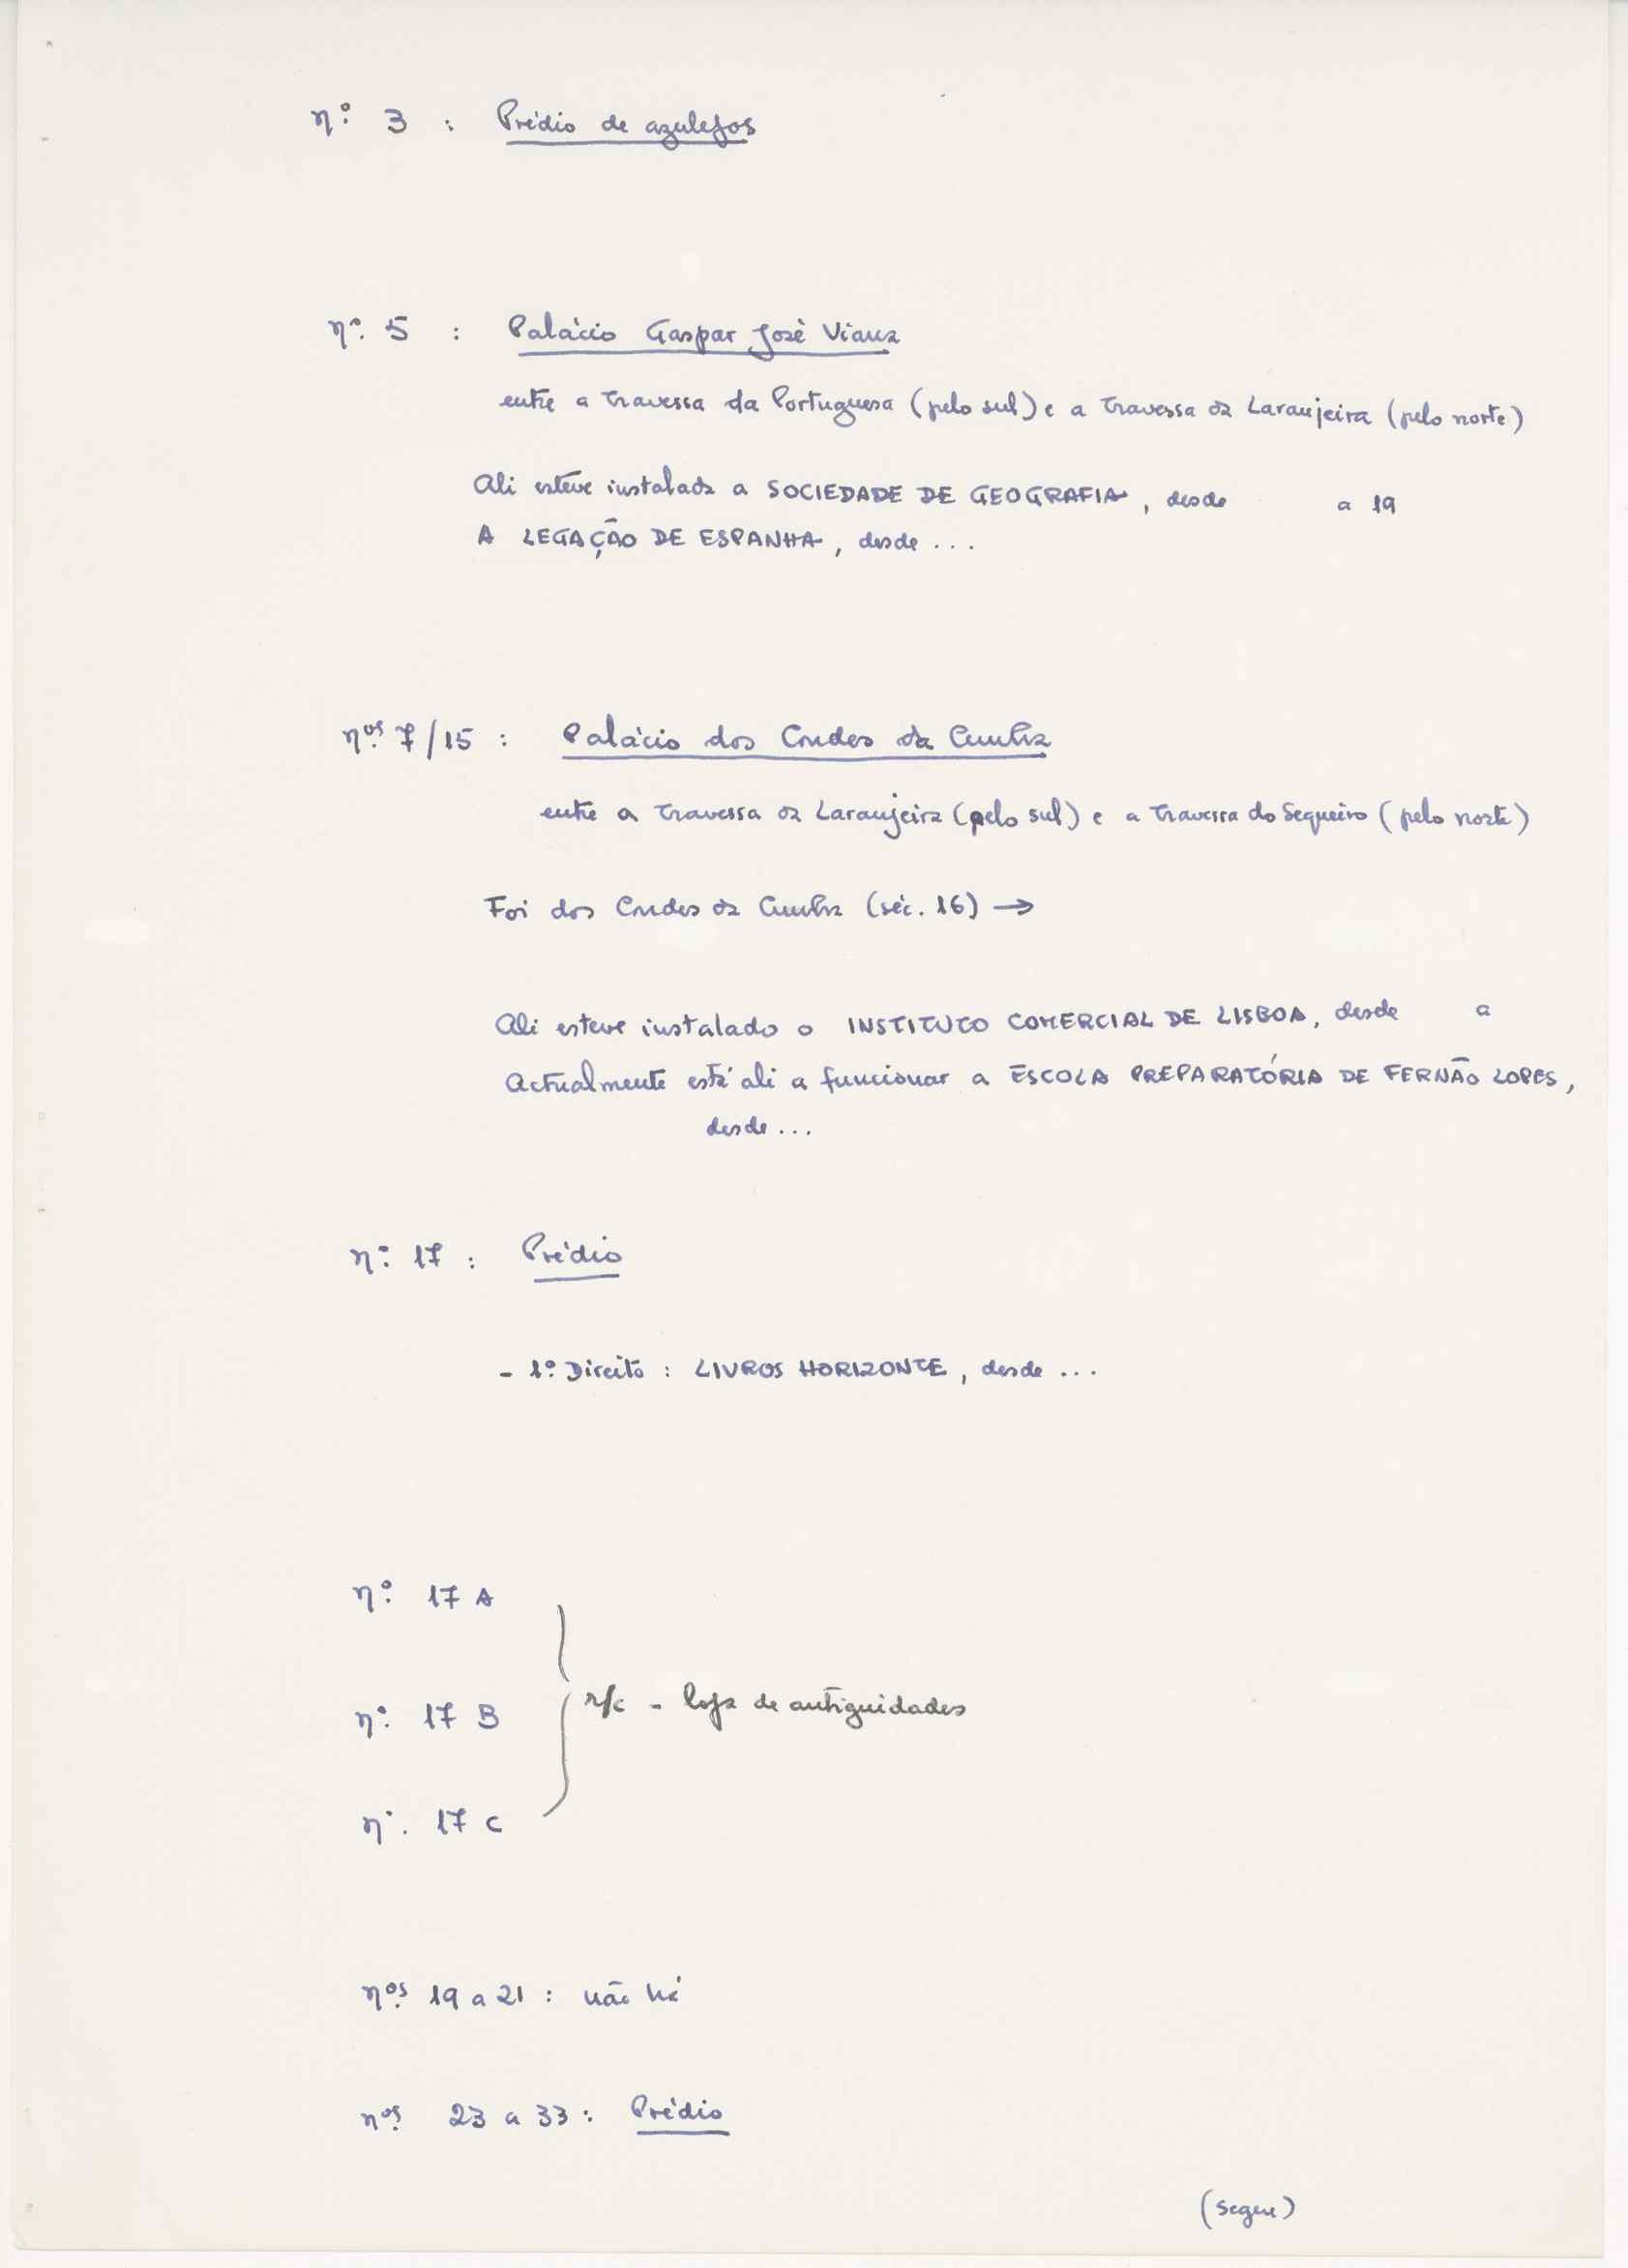 nº. 3 : Prédio de azulejos
nº. 5 : Palácio Gaspar José Viana
entre a travessa da Portuguesa (pelo sul) e a travessa da Laranjeira (pelo norte)
Ali esteve instalada a SOCIEDADE DE GEOGRAFIA, desde a 19
A LEGAÇÃO DE ESPANHA, desde ...
nos. 7/15 : Palácio dos Condes da Cunha
entre a travessa da Laranjeira (pelo sul) e a travessa do Sequeiro (pelo norte)
Foi dos Condes da Cunha (séc. 16) →
Ali esteve instalado o INSTITUTO COMERCIAL DE LISBOA, desde a
Actualmente está ali a funcionar a ESCOLA PREPARATÓRIA DE FERNÃO LOPES,
desde ...
nº. 17 : Prédio
- 1º. Direito : LIVROS HORIZONTE, desde ...
nº. 17 A
r/c - loja de antiguidades
nº. 17 B
nº. 17 C
nos. 19 a 21 : não há
nos. 23 a 33 : Prédio
(segue)